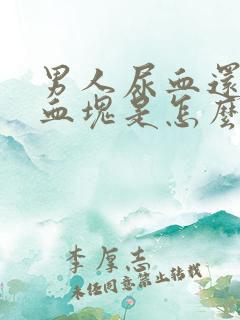 男人尿血還
血塊是怎麼
李厚志
未经同意禁止转载